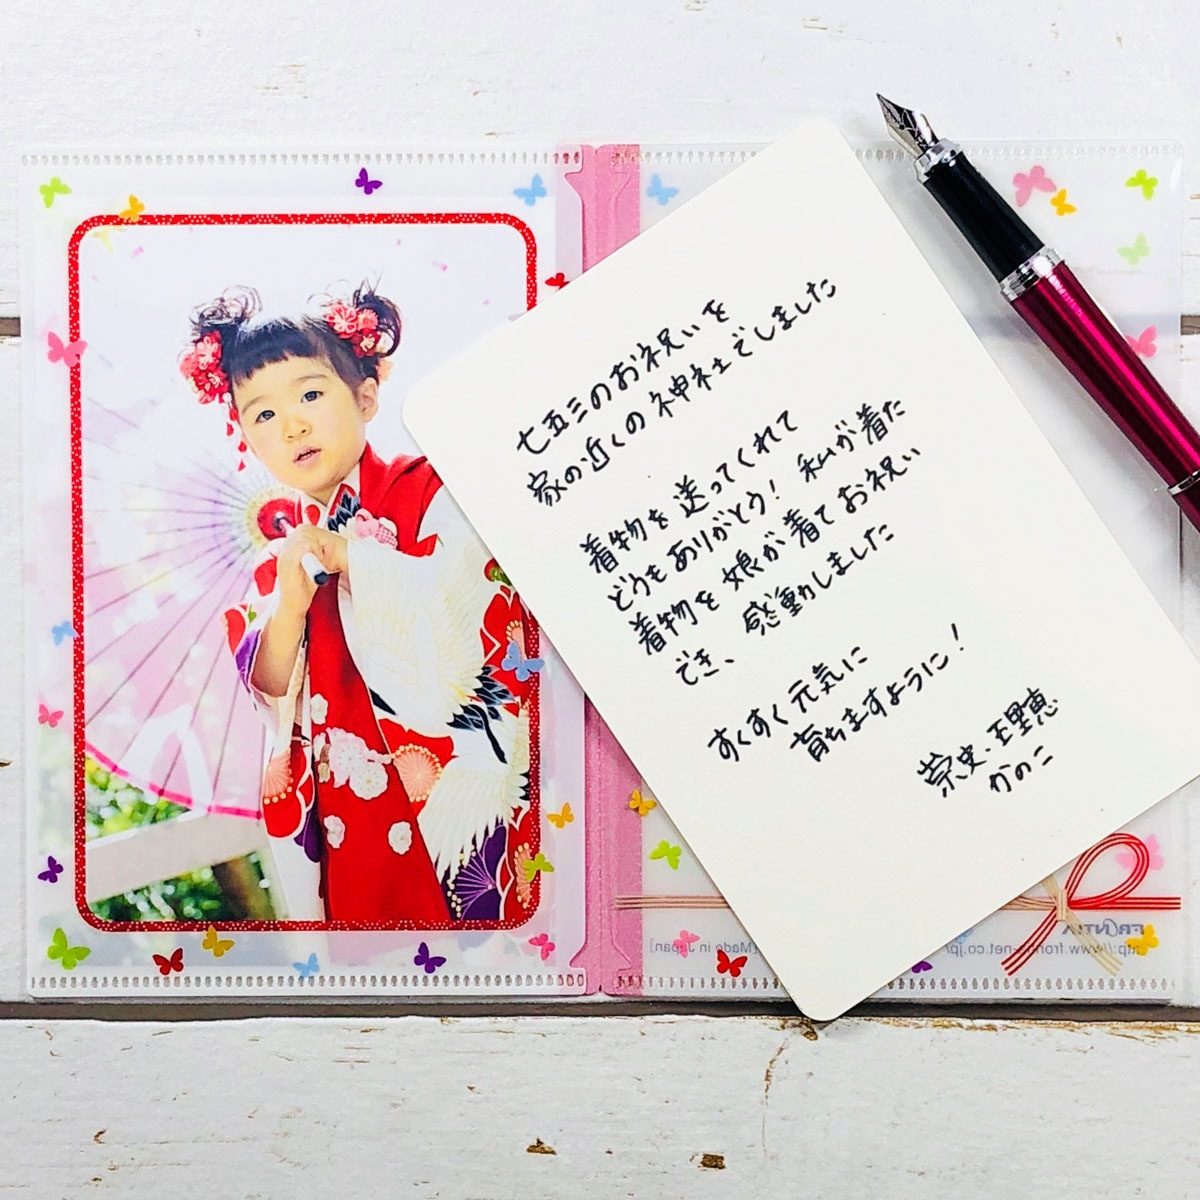 七五三のお祝いを
家の近くの神社でしました
着物を送ってくれて
どうもありがとう！ 私が着た
着物を娘が着てお祝い
でき、感動しました
すくすく元気に
育ちますように！
崇史・理恵
かのこ
FRONTIA
[Made in Japan]